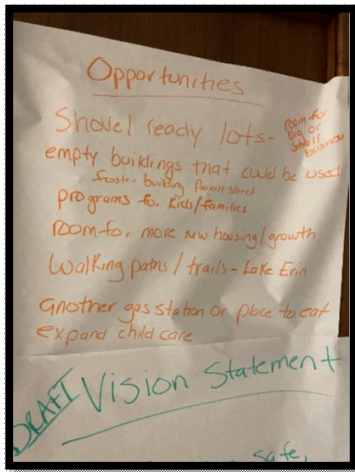 Opportunities
Shovel ready lots - room for
big or
small
business
empty buildings that could be used
building
programs for kids/families
room for more new housing/growth
Walking paths / trails - Lake Erin
another gas station or place to eat
expand child care
DRAFT Vision Statement
safe,